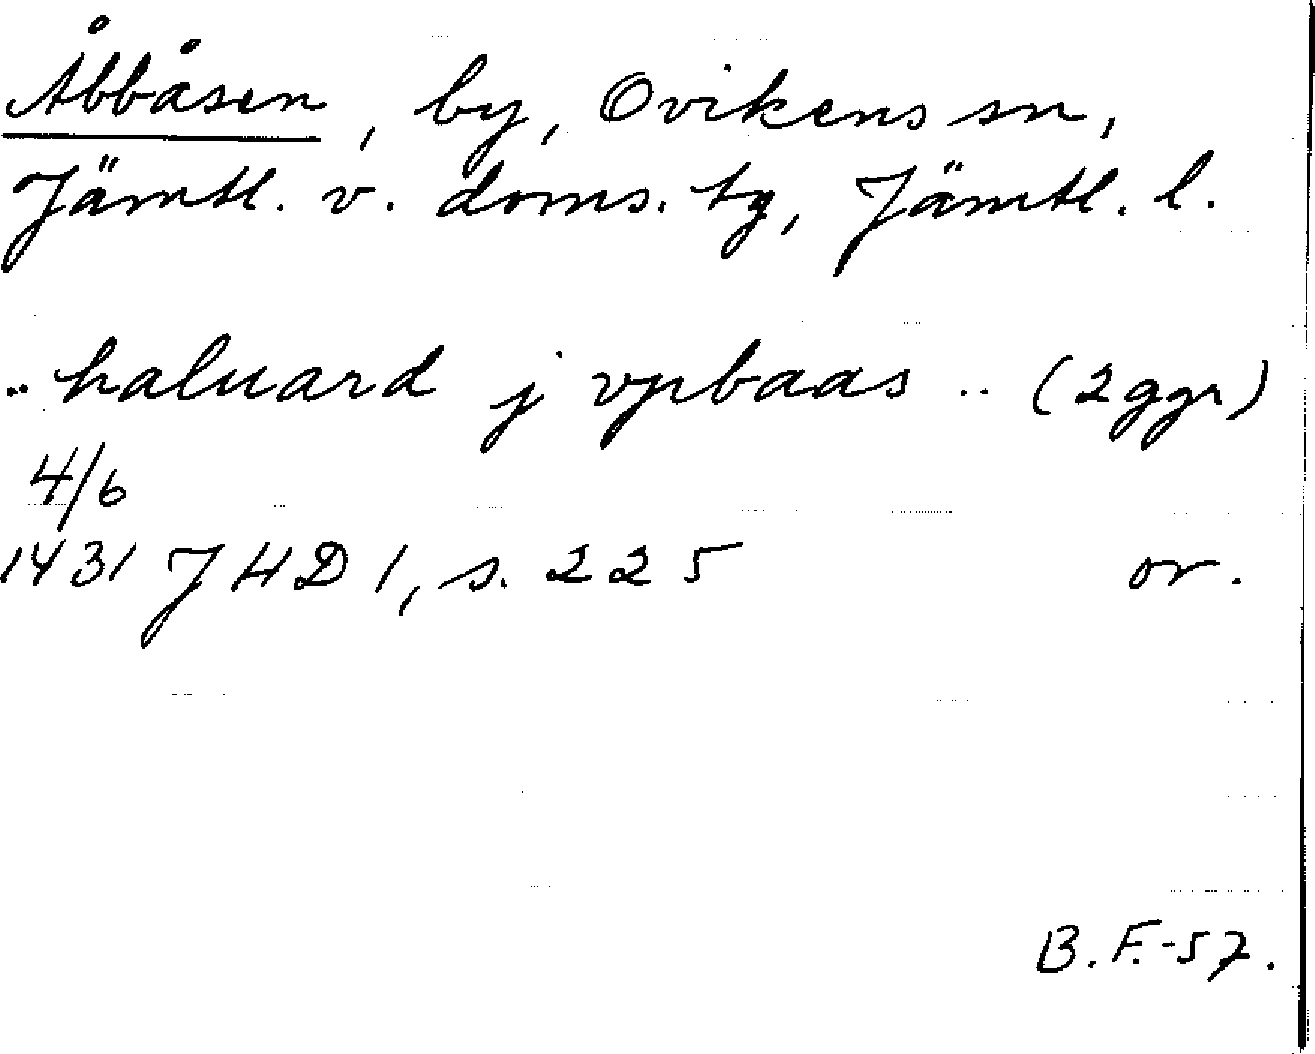 Åbbåsen, by, Ovikens sn,
Jämtl. v. doms. tg, Jämtl. l.
.. haluard j vpbaas .. (2 ggr)
4/6
1431 JHD 1, s. 225 or.
B.F.-57.